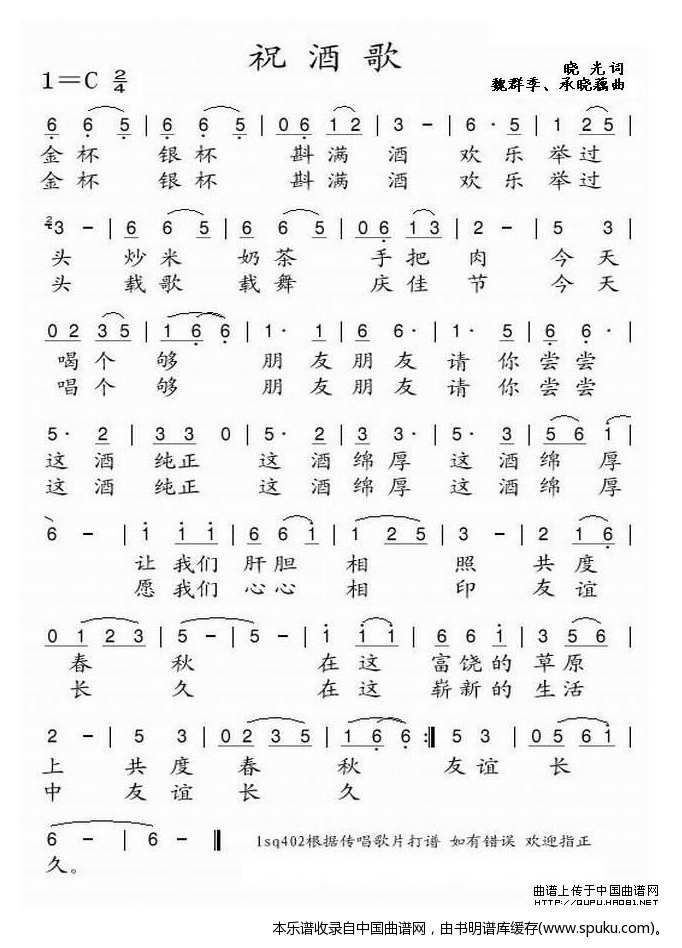 祝酒歌
1=C 2/4
晓光词
魏群季、承晓藕曲
6 6 5 | 6 6 5 | 0 6 1 2 | 3 - | 6· 5 | 1 2 5 |
金杯 银杯 斟满 酒 欢乐 举过
金杯 银杯 斟满 酒 欢乐 举过
2/4 3 - | 6 6 5 | 6 6 5 | 0 6 1 3 | 2 - | 5 3 |
头 炒米 奶茶 手把 肉 今天
头 载歌 载舞 庆佳 节 今天
0 2 3 5 | 1 6 6 | 1· 1 | 6 6· | 1· 1 | 6 6 |
喝个 够 朋友 朋友 请你 尝尝
唱个 够 朋友 朋友 请你 尝尝
5· 2 | 3 3 0 | 5· 2 | 3 3· | 5· 2 | 5 6 1 |
这酒 纯正 这酒 绵厚 这酒 绵厚
这酒 纯正 这酒 绵厚 这酒 绵厚
6 - | 1 1 1 | 6 6 1 | 1 2 5 | 3 - | 2 1 6 |
让我们 肝胆 相 照 共度
愿我们 心心 相 印 友谊
0 1 2 3 | 5 - | 5 - | 1 1 1 | 6 6 1 | 3 5 6 |
春 秋 在这 富饶的 草原
长 久 在这 崭新的 生活
2 - | 5 3 | 0 2 3 5 | 1 6 6 :| 5 3 | 0 5 6 1 |
上 共度 春 秋 友谊 长
中 友谊 长 久
6 - | 6 - ‖
久。
1sq402根据传唱歌片打谱 如有错误 欢迎指正
曲谱上传于中国曲谱网
HTTP://QUPU.HAO81.NET
本乐谱收录自中国曲谱网，由书明谱库缓存(www.spuku.com)。